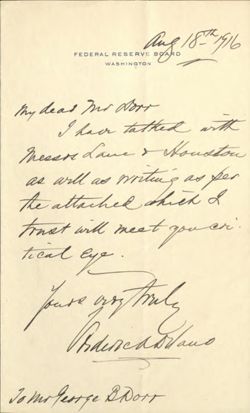 Aug 18th 1916
FEDERAL RESERVE BOARD
WASHINGTON
My dear Mr Dorr
I have talked with
Messrs Lane & Houston
as well as writing as per
the attached which I
trust will meet your cri-
tical eye.
Yours very truly
Frederic A Delano
To Mr George B Dorr